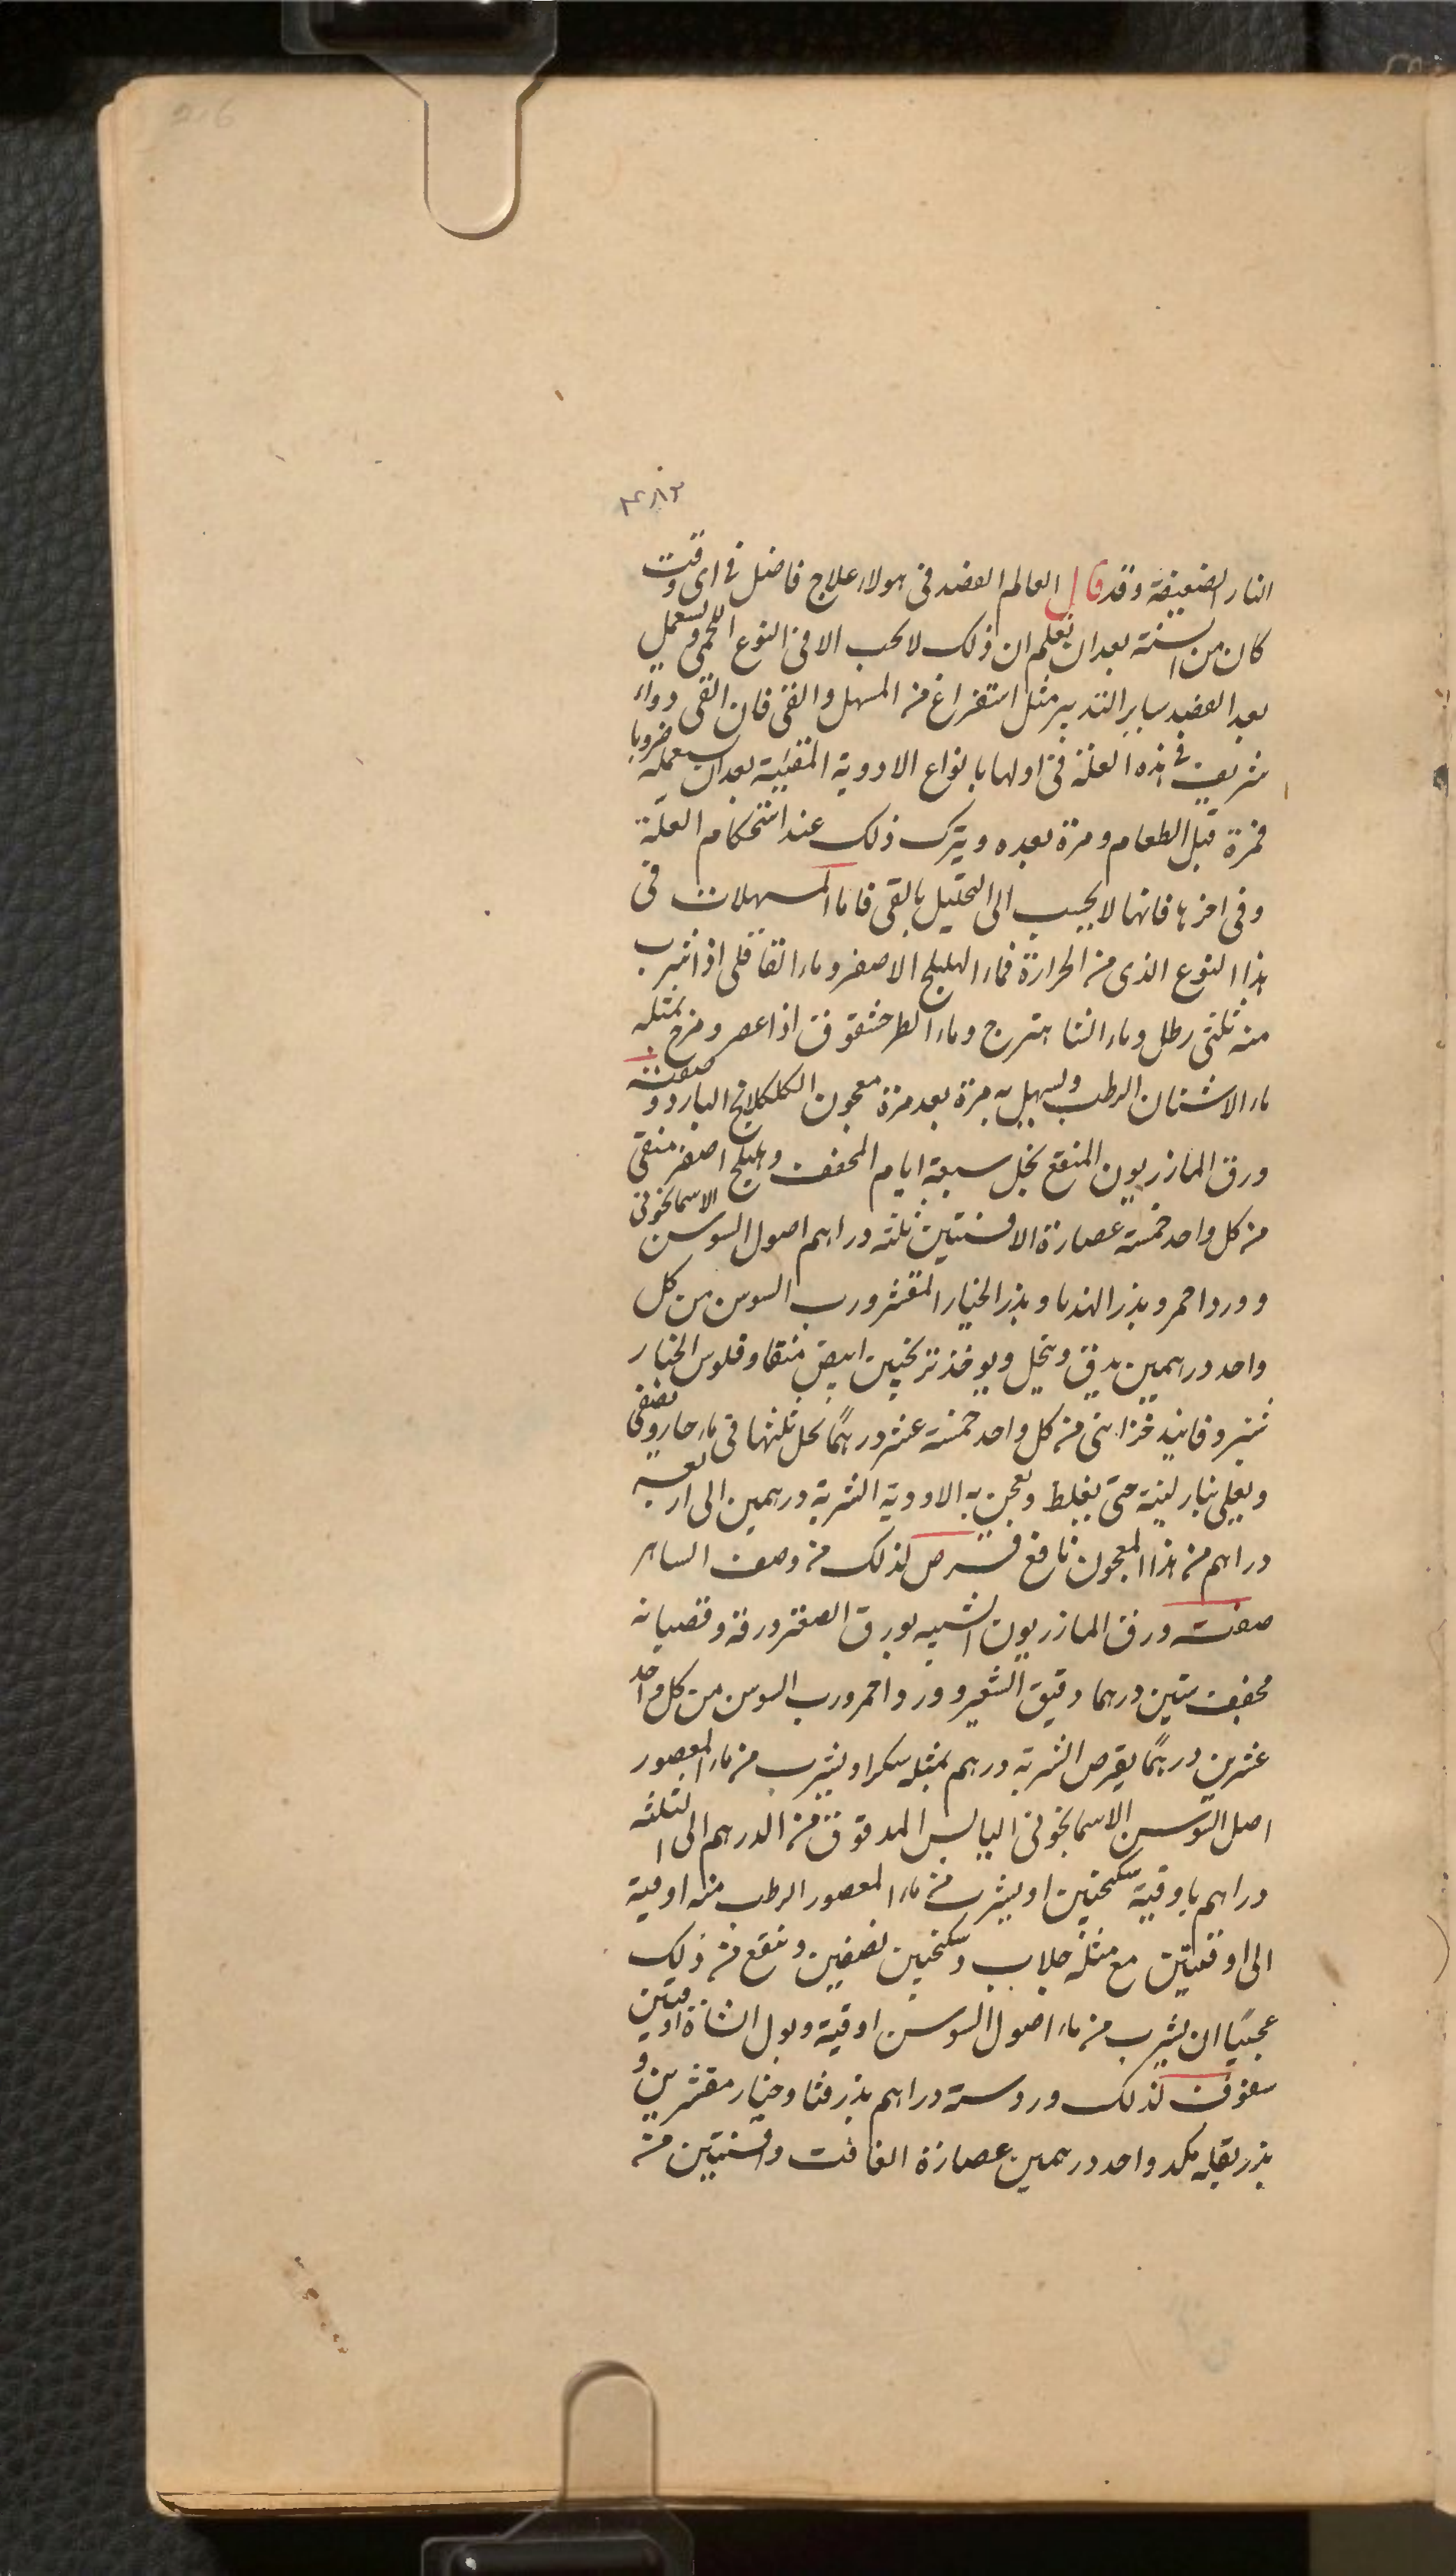 216
النار الضعيفة وقد قال العالم الفصد فى هولاء علاج فاضل فى اى وقت
كان من السنة بعد ان تعلم ان ذلك لا يجب الا فى النوع اللحمى ويستعمل
بعد الفصد ساير التدبير مثل استفراغ من المسهل والقى فان القى دواء
شريف فى هذه العلة فى اولها بانواع الادوية المقيئية بعد ان يستعمله ضروبا
فمرة قبل الطعام ومرة بعده ويترك ذلك عند استحكام العلة
وفى اخرها فانها لا يجيب الى التحليل بالقى فاما المسهلات فى
هذا النوع الذى من الحرارة فماء الهليلج الاصفر وماء القاقلى اذا شرب
منه ثلثى رطل وماء الشاهترج وماء الطرخشقوق اذا عصر ومزج بمثله
ماء الاشنان الرطب ويسهل به مرة بعد مرة معجون الكلكلانج البارد وصفته
ورق المازريون المنقع بخل سبعة ايام المجفف وهليلج اصفر منقى
من كل واحد خمسة عصارة الافسنتين ثلثه دراهم اصول السوسن الاسمانجونى
وورد احمر وبذر الهندبا وبذر الخيار المقشر ورب السوس من كل
واحد درهمين يدق وينخل ويوخذ ترنجبين ابيض منقا وفلوس الخيار
شنبر وفانيد خزاينى من كل واحد خمسة عشر درهمًا يحل ثلثها فى ماء حار ويصفى
ويغلى بنار لينة حتى يغلظ ويعجن به الادوية الشربة درهمين الى اربعه
دراهم من هذا المعجون نافع قرص لذلك من وصف الساهر
صفته ورق المازريون الشبيه بورق الصعتر ورقه وقضبانه
مجفف ستين درهما دقيق الشعير وورد احمر ورب السوس من كل واحد
عشرين درهمًا يقرص الشربة درهم بمثله سكر او يشرب من ماء المعصور
اصل السوسن الاسمانجونى اليابس المدقوق من الدرهم الى الثلثه
دراهم باوقية سكنجبين او يشرب من ماء المعصور الرطب منه اوقية
الى اوقيتين مع مثله جلاب وسكنجبين نصفين وينفع من ذلك
عجيبًا ان يشرب من ماء اصول السوسن اوقية وبول الشاة اوقيتين
سفوف لذلك ورد ستة دراهم بذر قثا وخيار مقشرين و
بذر بقله مكد واحد درهمين عصارة الغافت وافسنتين من